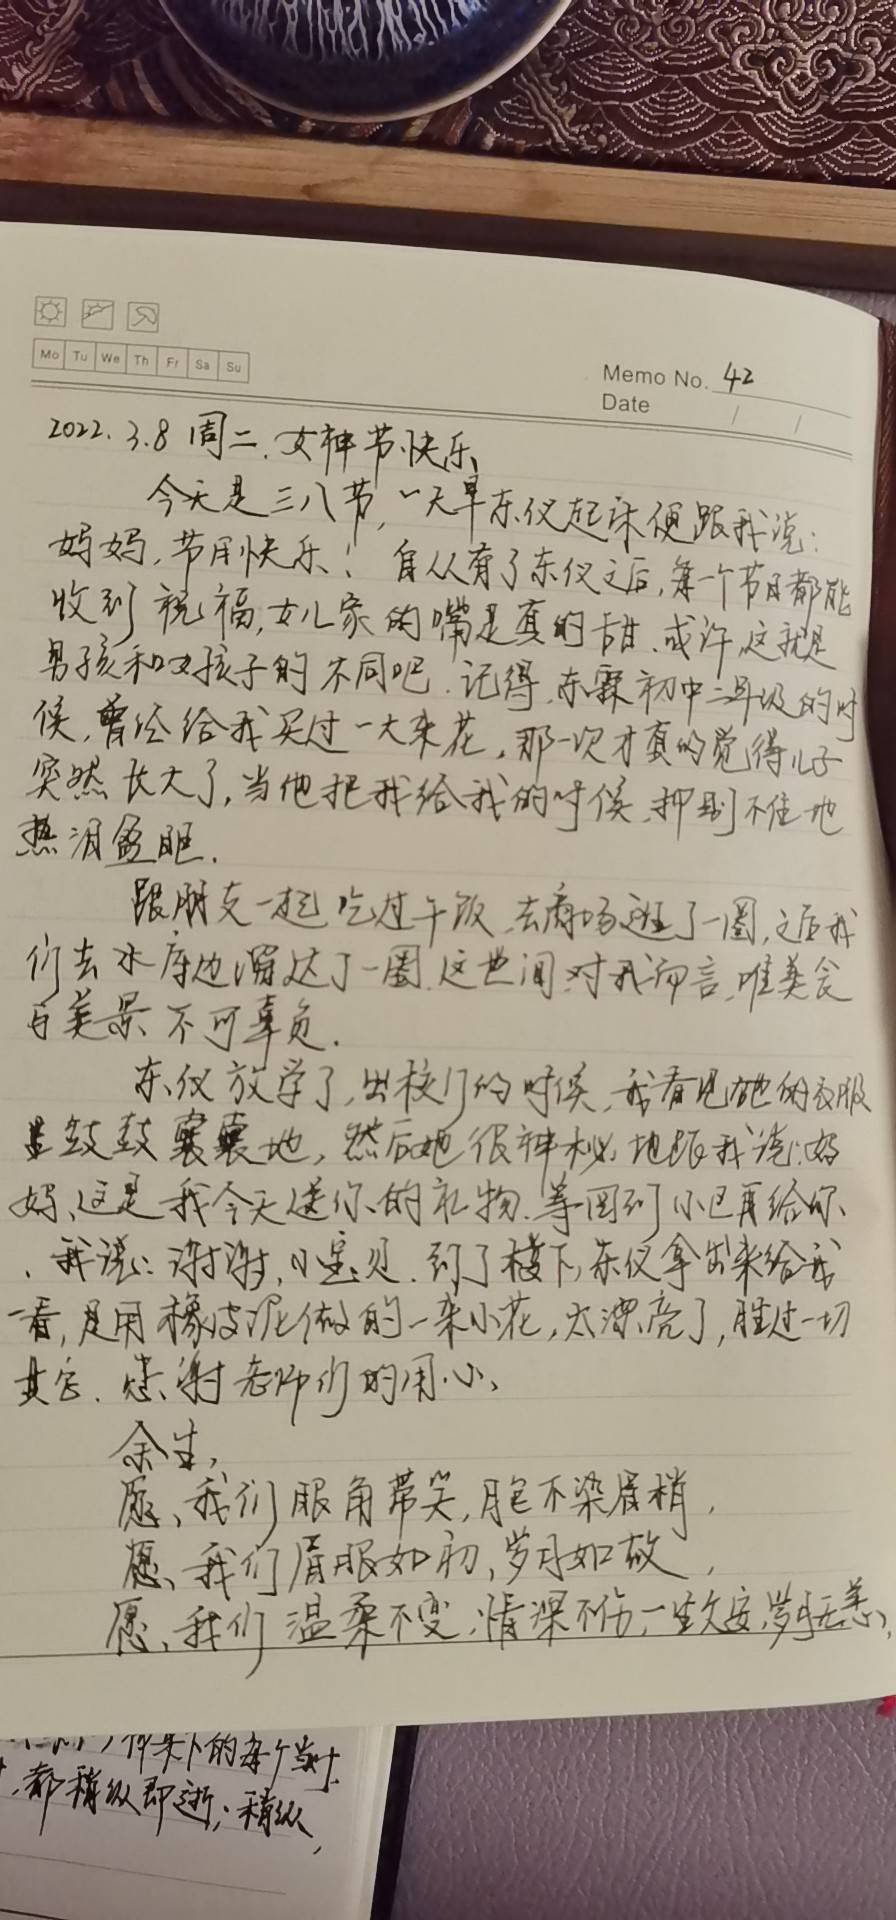 Mo Tu We Th Fr Sa Su
Memo No. 42
Date / /
2022.3.8 周二.女神节快乐
今天是三八节,一大早东仪起床便跟我说:
妈妈,节日快乐!自从有了东仪之后,每一个节日都能
收到祝福,女儿家的嘴是真的甜.或许,这就是
男孩和女孩子的不同吧.记得,东霖初中二年级的时
候,曾经给我买过一大束花,那一次才真的觉得儿子
突然长大了,当他把我给我的时候,抑制不住地
热泪盈眶.
跟朋友一起吃过午饭,去商场逛了一圈,之后我
们去水库边溜达了一圈.这世间,对我而言,唯美食
与美景不可辜负.
东仪放学了,出校门的时候,我看见她的衣服
是鼓鼓囊囊地,然后她很神秘地跟我说:妈
妈,这是我今天送你的礼物.等回到小区再给你
.我说:谢谢,小宝贝.到了楼下,东仪拿出来给我
一看,是用橡皮泥做的一朵小花,太漂亮了,胜过一切
其它.感谢老师们的用心.
余生,
愿,我们眼角带笑,月色不染眉梢,
愿,我们眉眼如初,岁月如故,
愿,我们温柔不变,情深不伤,一生久安,岁月无恙.
的每个当时
,都稍纵即逝;稍纵